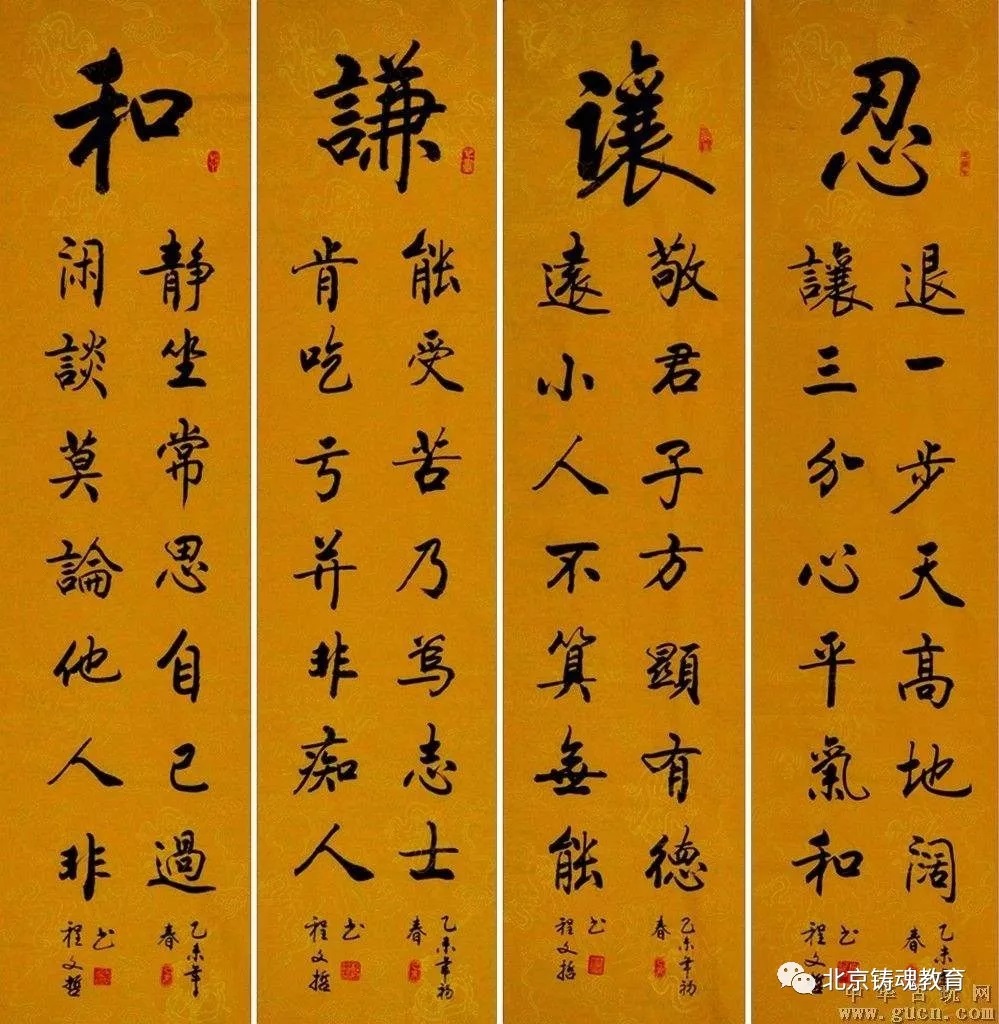 忍
退一步天高地阔
讓三分心平氣和
乙未年春
程文哲书
讓
敬君子方顯有德
遠小人不算無能
乙未年初春
程文哲书
謙
能受苦乃爲志士
肯吃亏并非痴人
乙未年初春
程文哲书
和
静坐常思自己過
闲談莫論他人非
乙未年春
程文哲书
北京铸魂教育
中华古玩网
www.gucn.com